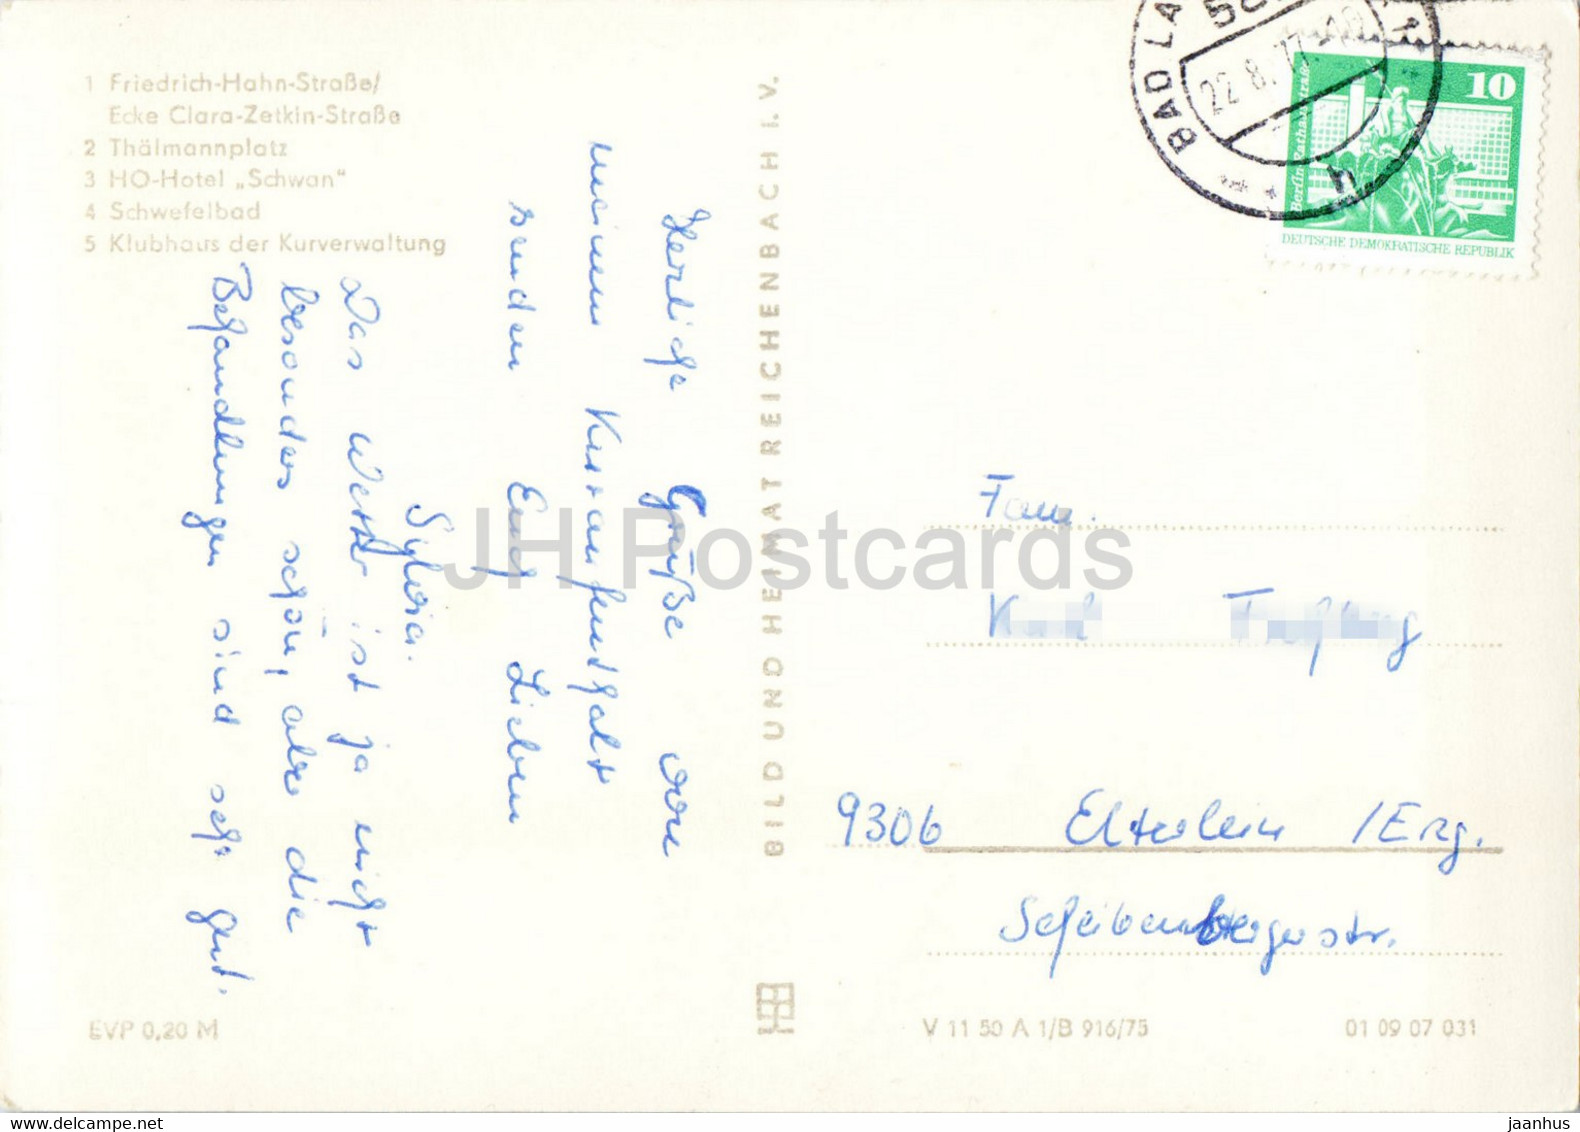 1 Friedrich-Hahn-Straße/
Ecke Clara-Zetkin-Straße
2 Thälmannplatz
3 HO-Hotel „Schwan"
4 Schwefelbad
5 Klubhaus der Kurverwaltung
Herzliche Grüße von
meinem Kuraufenthalt
senden Euch Lieben
Sylvia.
Das Wetter ist ja nicht
besonders schön, aber die
Behandlungen sind sehr gut.
EVP 0,20 M
BILD UND HEIMAT REICHENBACH I. V.
BAD LA
22.8.77-18
h
10
Berlin, Rathausstraße
DEUTSCHE DEMOKRATISCHE REPUBLIK
Fam.
9306 Elterlein /Erzg.
Scheibenbergerstr.
V 11 50 A 1/B 916/75
01 09 07 031
JH Postcards
jaanhus
https://www.delcampe.net